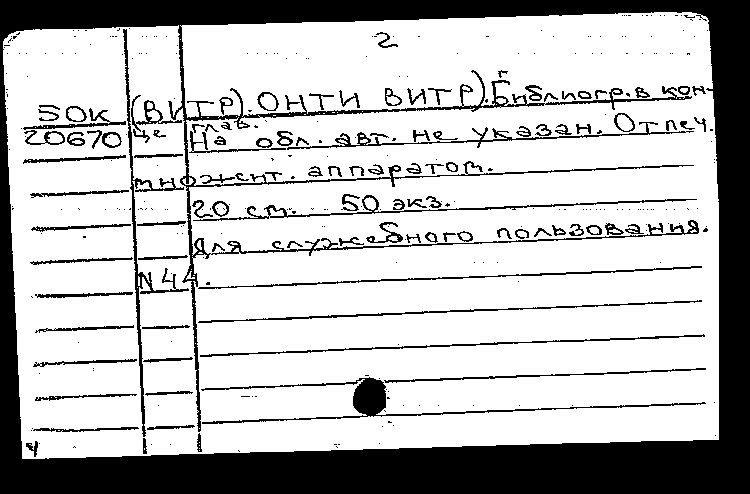 2
50к (ВИТР). ОНТИ ВИТР). Библиогр. в кон-
20670 це глав.
На обл. авт. не указан. Отпеч.
множит. аппаратом.
20 см. 50 экз.
Для служебного пользования.
N 44.
4